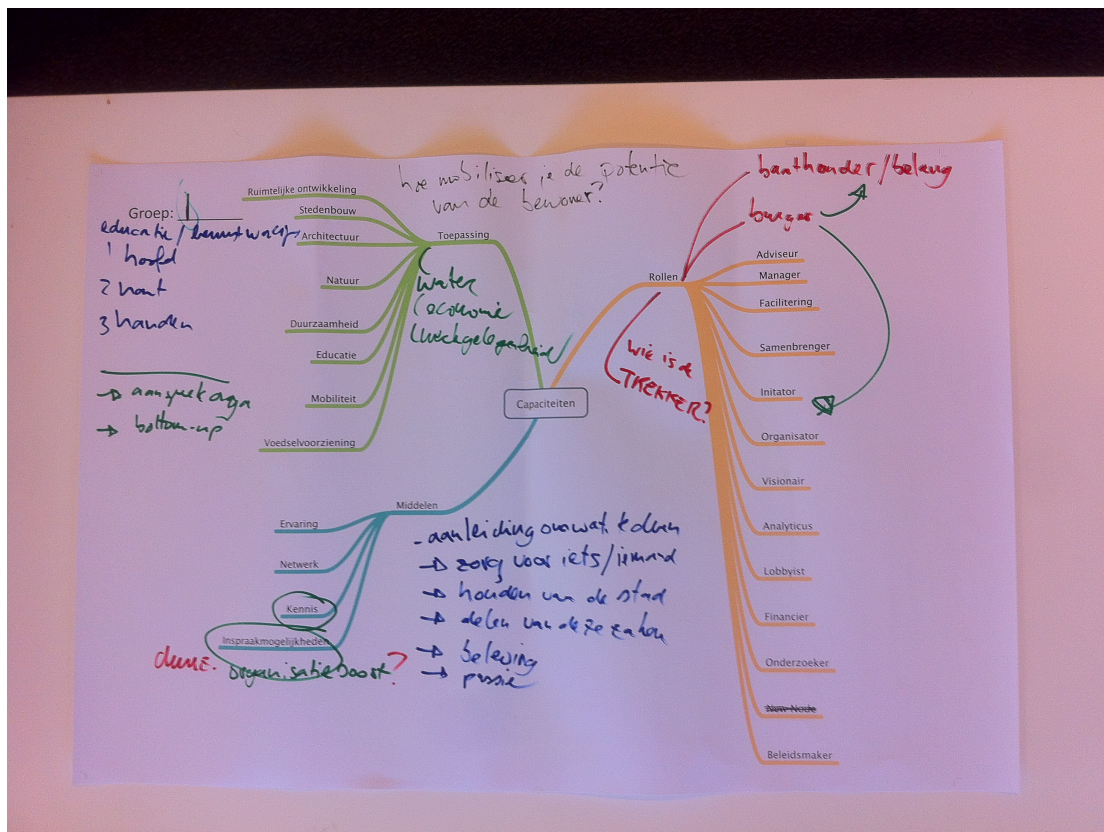 hoe mobiliseer je de potentie
van de bewoner?
Groep: 1
educatie/bewustwording
1 hoofd
2 hart
3 handen
→ aanspreken
→ bottom-up
Ruimtelijke ontwikkeling
Stedenbouw
Architectuur
Natuur
Duurzaamheid
Educatie
Mobiliteit
Voedselvoorziening
Toepassing
water
economie
(werkgelegenheid)
Capaciteiten
Middelen
Ervaring
Netwerk
Kennis
Inspraakmogelijkheden
organisatie soort?
- aanleiding om wat te doen
→ zorg voor iets/iemand
→ houden van de stad
→ delen van deze zaken
→ beleving
→ passie
Rollen
wie is de
TREKKER?
banthouder/belang
burger
Adviseur
Manager
Facilitering
Samenbrenger
Initator
Organisator
Visionair
Analyticus
Lobbyist
Financier
Onderzoeker
New Node
Beleidsmaker